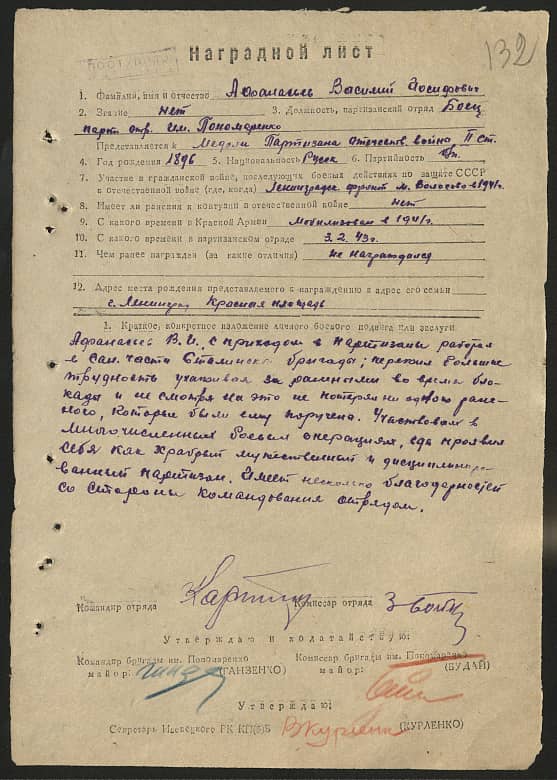 132
Наградной лист
1. Фамилия, имя и отчество Афанасьев Василий Иосифович
2. Звание нет 3. Должность, партизанский отряд Боец
парт. отр. им. Пономаренко
Представляется к Медали Партизана отечеств. война, II ст.
4. Год рождения 1896 5. Национальность Русск 6. Партийность б/п.
7. Участие в гражданской войне, последующих боевых действиях по защите СССР
и отечественной войне (где, когда) Ленинградск. фронт м. Волосово в 1941г.
8. Имеет ли ранения и контузии в отечественной войне нет
9. С какого времени в Красной Армии мобилизован в 1941г.
10. С какого времени в партизанском отряде 3.2.43г.
11. Чем ранее награжден (за какие отличия) не награждался
12. Адрес места рождения представляемого к награждению и адрес его семьи
г. Ленинград Красная площадь
1. Краткое, конкретное изложение личного боевого подвига или заслуги
Афанасьев В.И. с приходом в партизаны работая
в сан. части Сталинской бригады; пережил большие
трудность ухаживая за раненными во время бло-
кады и не смотря на это не потерял ни одного ране-
ного, которые были ему поручены. Участвовал в
многочисленных боевых операциях, где проявил
себя как храбрый мужественный и дисциплиниро-
ванный партизан. Имеет несколько благодарностей
со стороны командования отрядом.
Командир отряда Комиссар отряда
Утверждаю и ходатайствую:
Командир бригады им. Пономаренко Комиссар бригады им. Пономаренко
майор: (ГАНЗЕНКО) майор: (БУДАЙ)
Утверждаю:
Секретарь Ивенецкого РК КП(б)Б (КУРЛЕНКО)